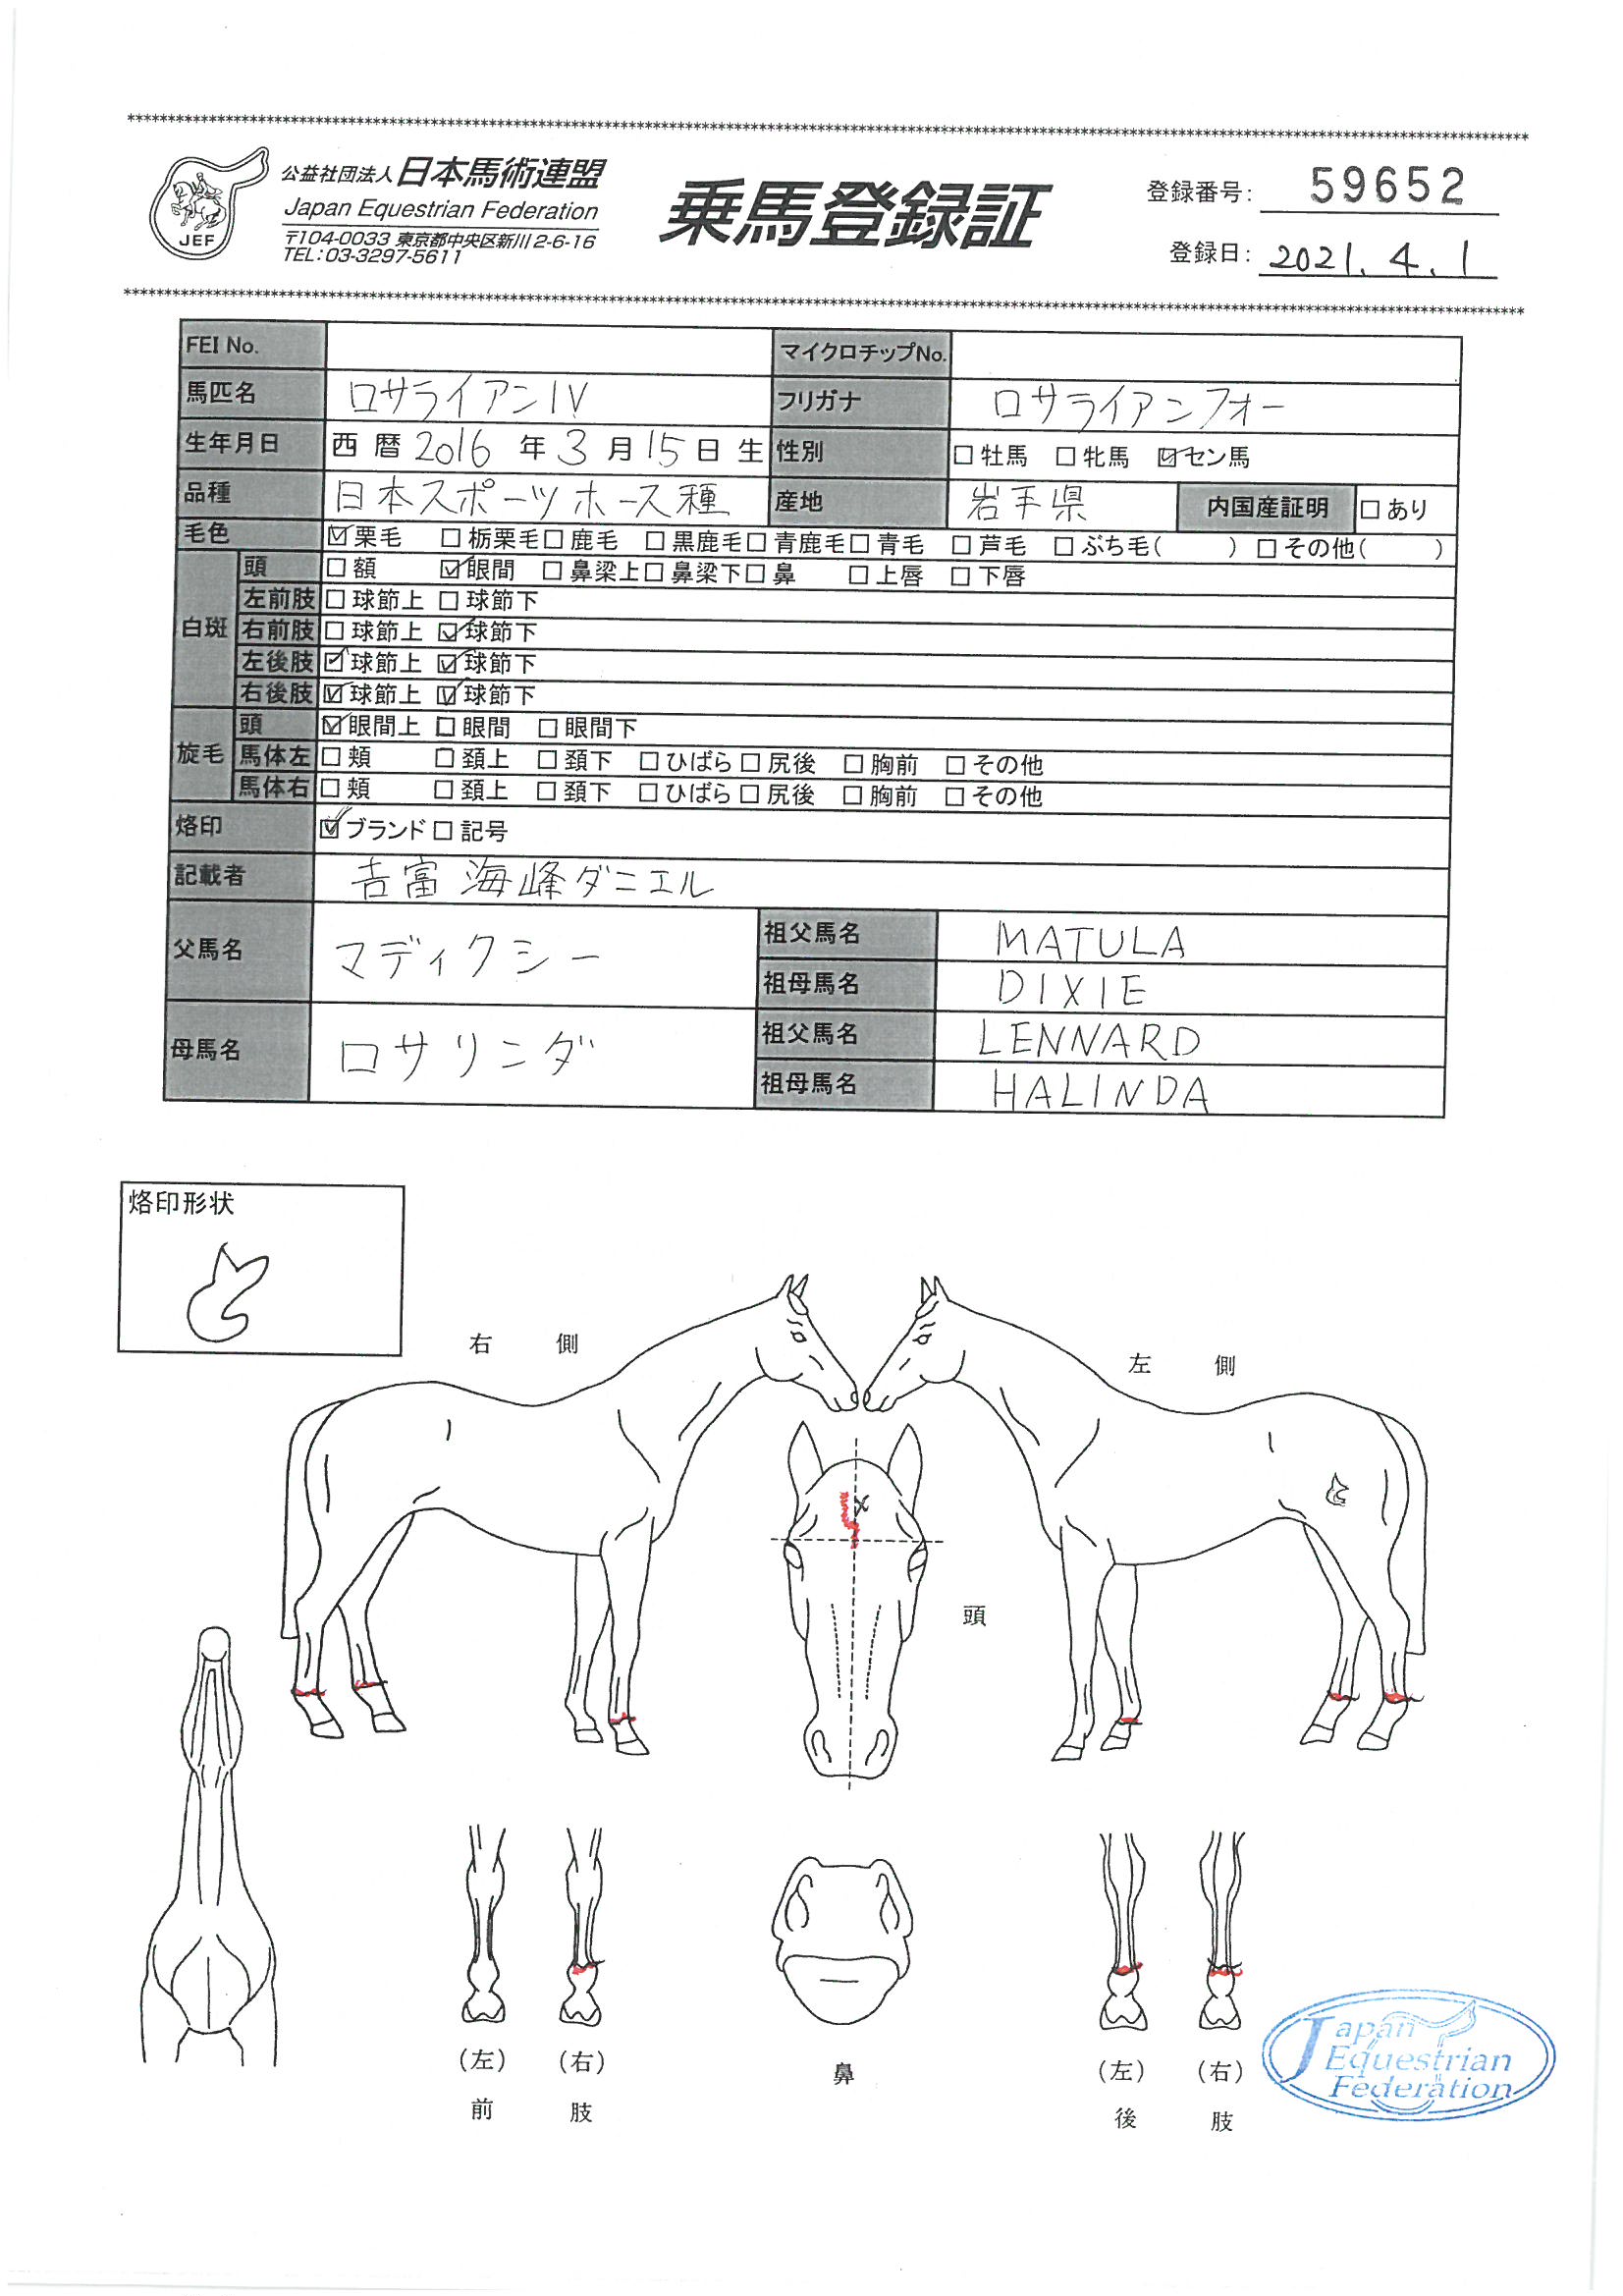 公益社団法人 日本馬術連盟
Japan Equestrian Federation
〒104-0033 東京都中央区新川2-6-16
TEL:03-3297-5611
JEF
乗馬登録証
登録番号: 59652
登録日: 2021.4.1
FEI No. マイクロチップNo.
馬匹名 ロサライアンIV フリガナ ロサライアンフォー
生年月日 西暦 2016 年 3 月 15 日生 性別 □牡馬 □牝馬 ☑セン馬
品種 日本スポーツホース種 産地 岩手県 内国産証明 □あり
毛色 ☑栗毛 □栃栗毛 □鹿毛 □黒鹿毛 □青鹿毛 □青毛 □芦毛 □ぶち毛( ) □その他( )
白斑 頭 □額 ☑眼間 □鼻梁上 □鼻梁下 □鼻 □上唇 □下唇
左前肢 □球節上 □球節下
右前肢 □球節上 ☑球節下
左後肢 ☑球節上 ☑球節下
右後肢 ☑球節上 ☑球節下
旋毛 頭 ☑眼間上 □眼間 □眼間下
馬体左 □頬 □頚上 □頚下 □ひばら □尻後 □胸前 □その他
馬体右 □頬 □頚上 □頚下 □ひばら □尻後 □胸前 □その他
烙印 ☑ブランド □記号
記載者 吉富 海峰ダニエル
父馬名 マディクシー 祖父馬名 MATULA
祖母馬名 DIXIE
母馬名 ロサリンダ 祖父馬名 LENNARD
祖母馬名 HALINDA
烙印形状
右側
左側
頭
(左) (右)
前肢
鼻
(左) (右)
後肢
Japan
Equestrian
Federation